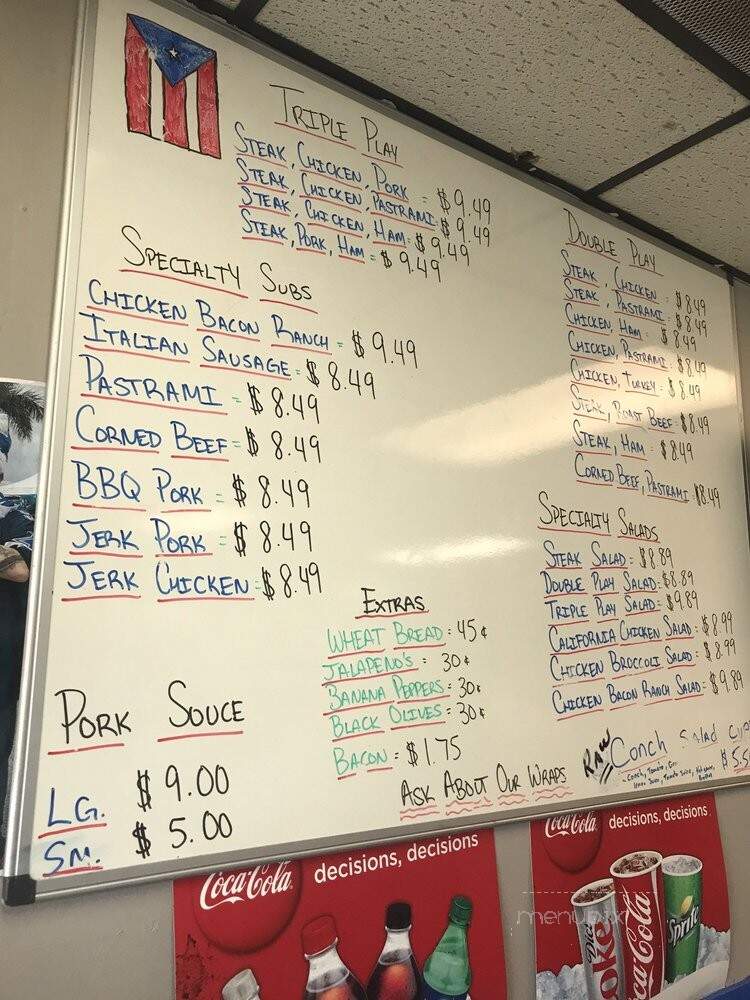 TRIPLE PLAY
STEAK, CHICKEN, PORK = $9.49
STEAK, CHICKEN, PASTRAMI = $9.49
STEAK, CHICKEN, HAM = $9.49
STEAK, PORK, HAM = $9.49
SPECIALTY SUBS
CHICKEN BACON RANCH = $9.49
ITALIAN SAUSAGE = $8.49
PASTRAMI = $8.49
CORNED BEEF = $8.49
BBQ PORK = $8.49
JERK PORK = $8.49
JERK CHICKEN = $8.49
PORK SOUCE
LG. $9.00
SM. $5.00
EXTRAS
WHEAT BREAD = 45¢
JALAPENO'S = 30¢
BANANA PEPPERS = 30¢
BLACK OLIVES = 30¢
BACON = $1.75
ASK ABOUT OUR WRAPS
DOUBLE PLAY
STEAK, CHICKEN = $8.49
STEAK, PASTRAMI = $8.49
CHICKEN, HAM = $8.49
CHICKEN, PASTRAMI = $8.49
CHICKEN, TURKEY = $8.49
STEAK, ROAST BEEF = $8.49
STEAK, HAM = $8.49
CORNED BEEF, PASTRAMI $8.49
SPECIALTY SALADS
STEAK SALAD = $8.89
DOUBLE PLAY SALAD = $8.89
TRIPLE PLAY SALAD = $9.89
CALIFORNIA CHICKEN SALAD = $8.99
CHICKEN BROCCOLI SALAD = $8.99
CHICKEN BACON RANCH SALAD = $9.89
RAW Conch Salad
Conch, Tomato,
Juice, Tomato Juice,
Coca-Cola decisions, decisions
Coca-Cola decisions, decisions
Diet Coke
Coca-Cola
Sprite
menupix